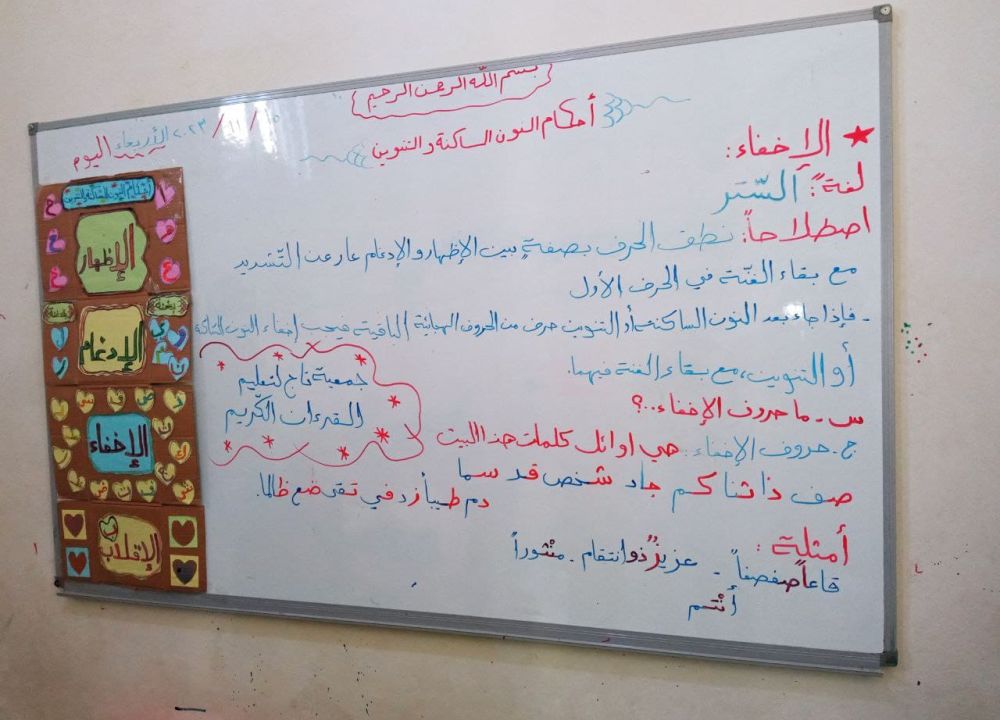 بسم الله الرحمن الرحيم
أحكام النون الساكنة والتنوين
اليوم الأربعاء / ١١ / ٢٠٢٣
الإخفاء:
لغةً: ألسّتر
اصطلاحاً: نطق الحرف بصفةٍ بين الإظهار والإدغام عار عن التّشديد
مع بقاء الغنّة في الحرف الأول
- فإذا جاء بعد النون الساكنة أو التنوين حرف من الحروف الهجائية الباقية فيجب إخفاء النون الساكنة
أو التنوين، مع بقاء الغنة فيهما.
س - ما حروف الإخفاء..؟
ج - حروف الإخفاء: هي اوائل كلمات هذا البيت
صف ذا ثنا كم جاد شخص قد سما
دم طيباً زد في تقى ضع ظالما.
أمثلة:
قاعاً صفصفاً - عزيزٌ ذو انتقام - منْثوراً
أنْتم
جمعية تاج لتعليم
القرءان الكّريم
أحكام النون الساكنة والتنوين
الإظهار
الإدغام
الإخفاء
الإقلاب